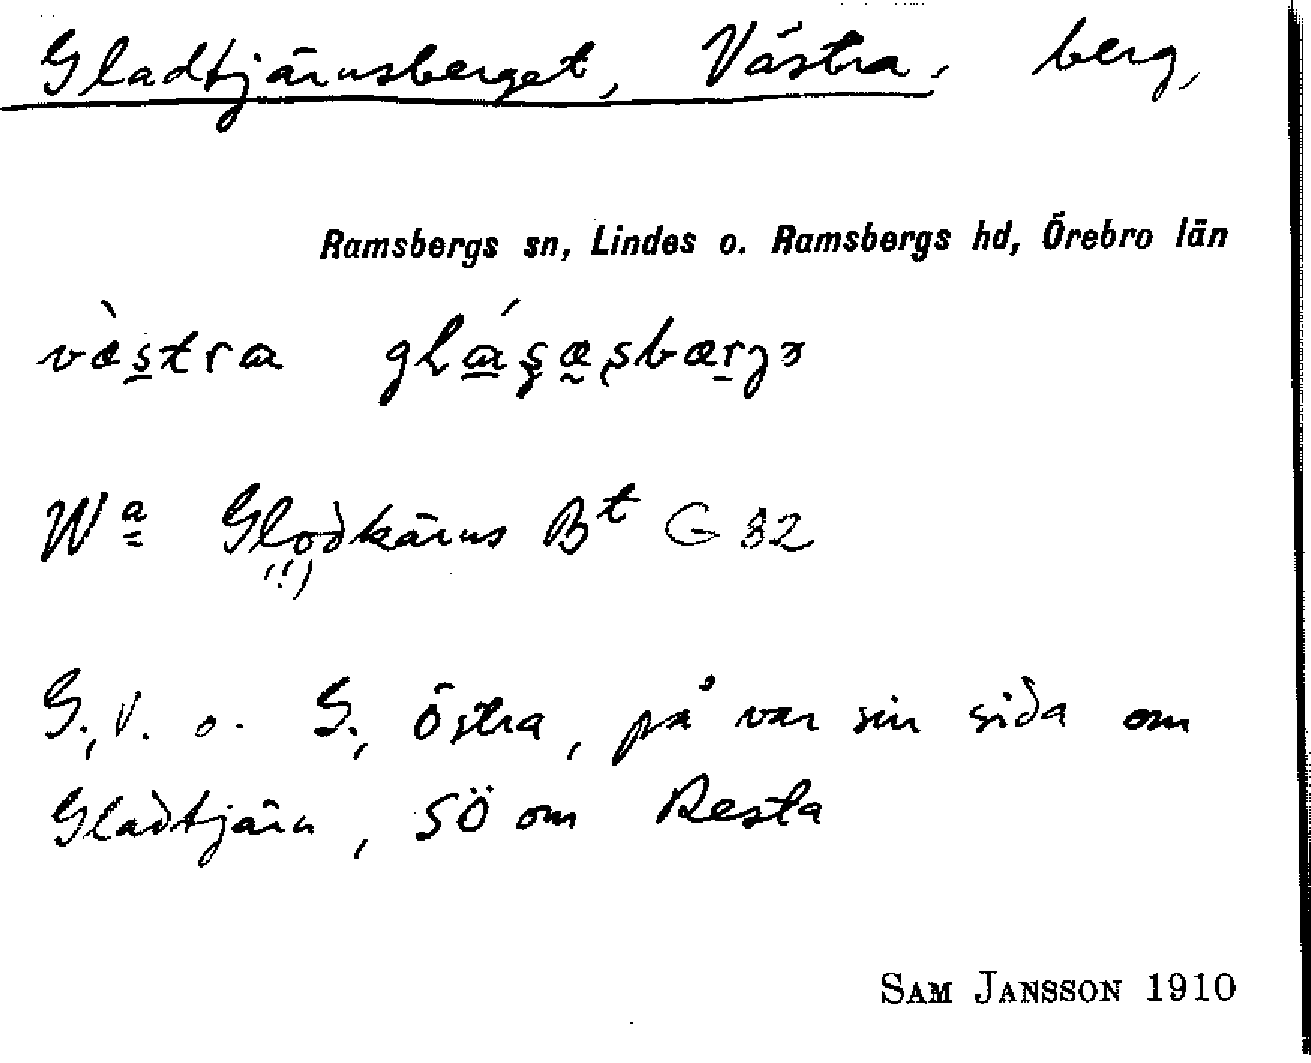 Gladtjärnsberget, Västra, berg,
Ramsbergs sn, Lindes o. Ramsbergs hd, Örebro län
västra
Wa Glodkärns Bt G 32
(!!)
G., V. o. G., Östra, på var sin sida om
Gladtjärn, SÖ om Resta
SAM JANSSON 1910